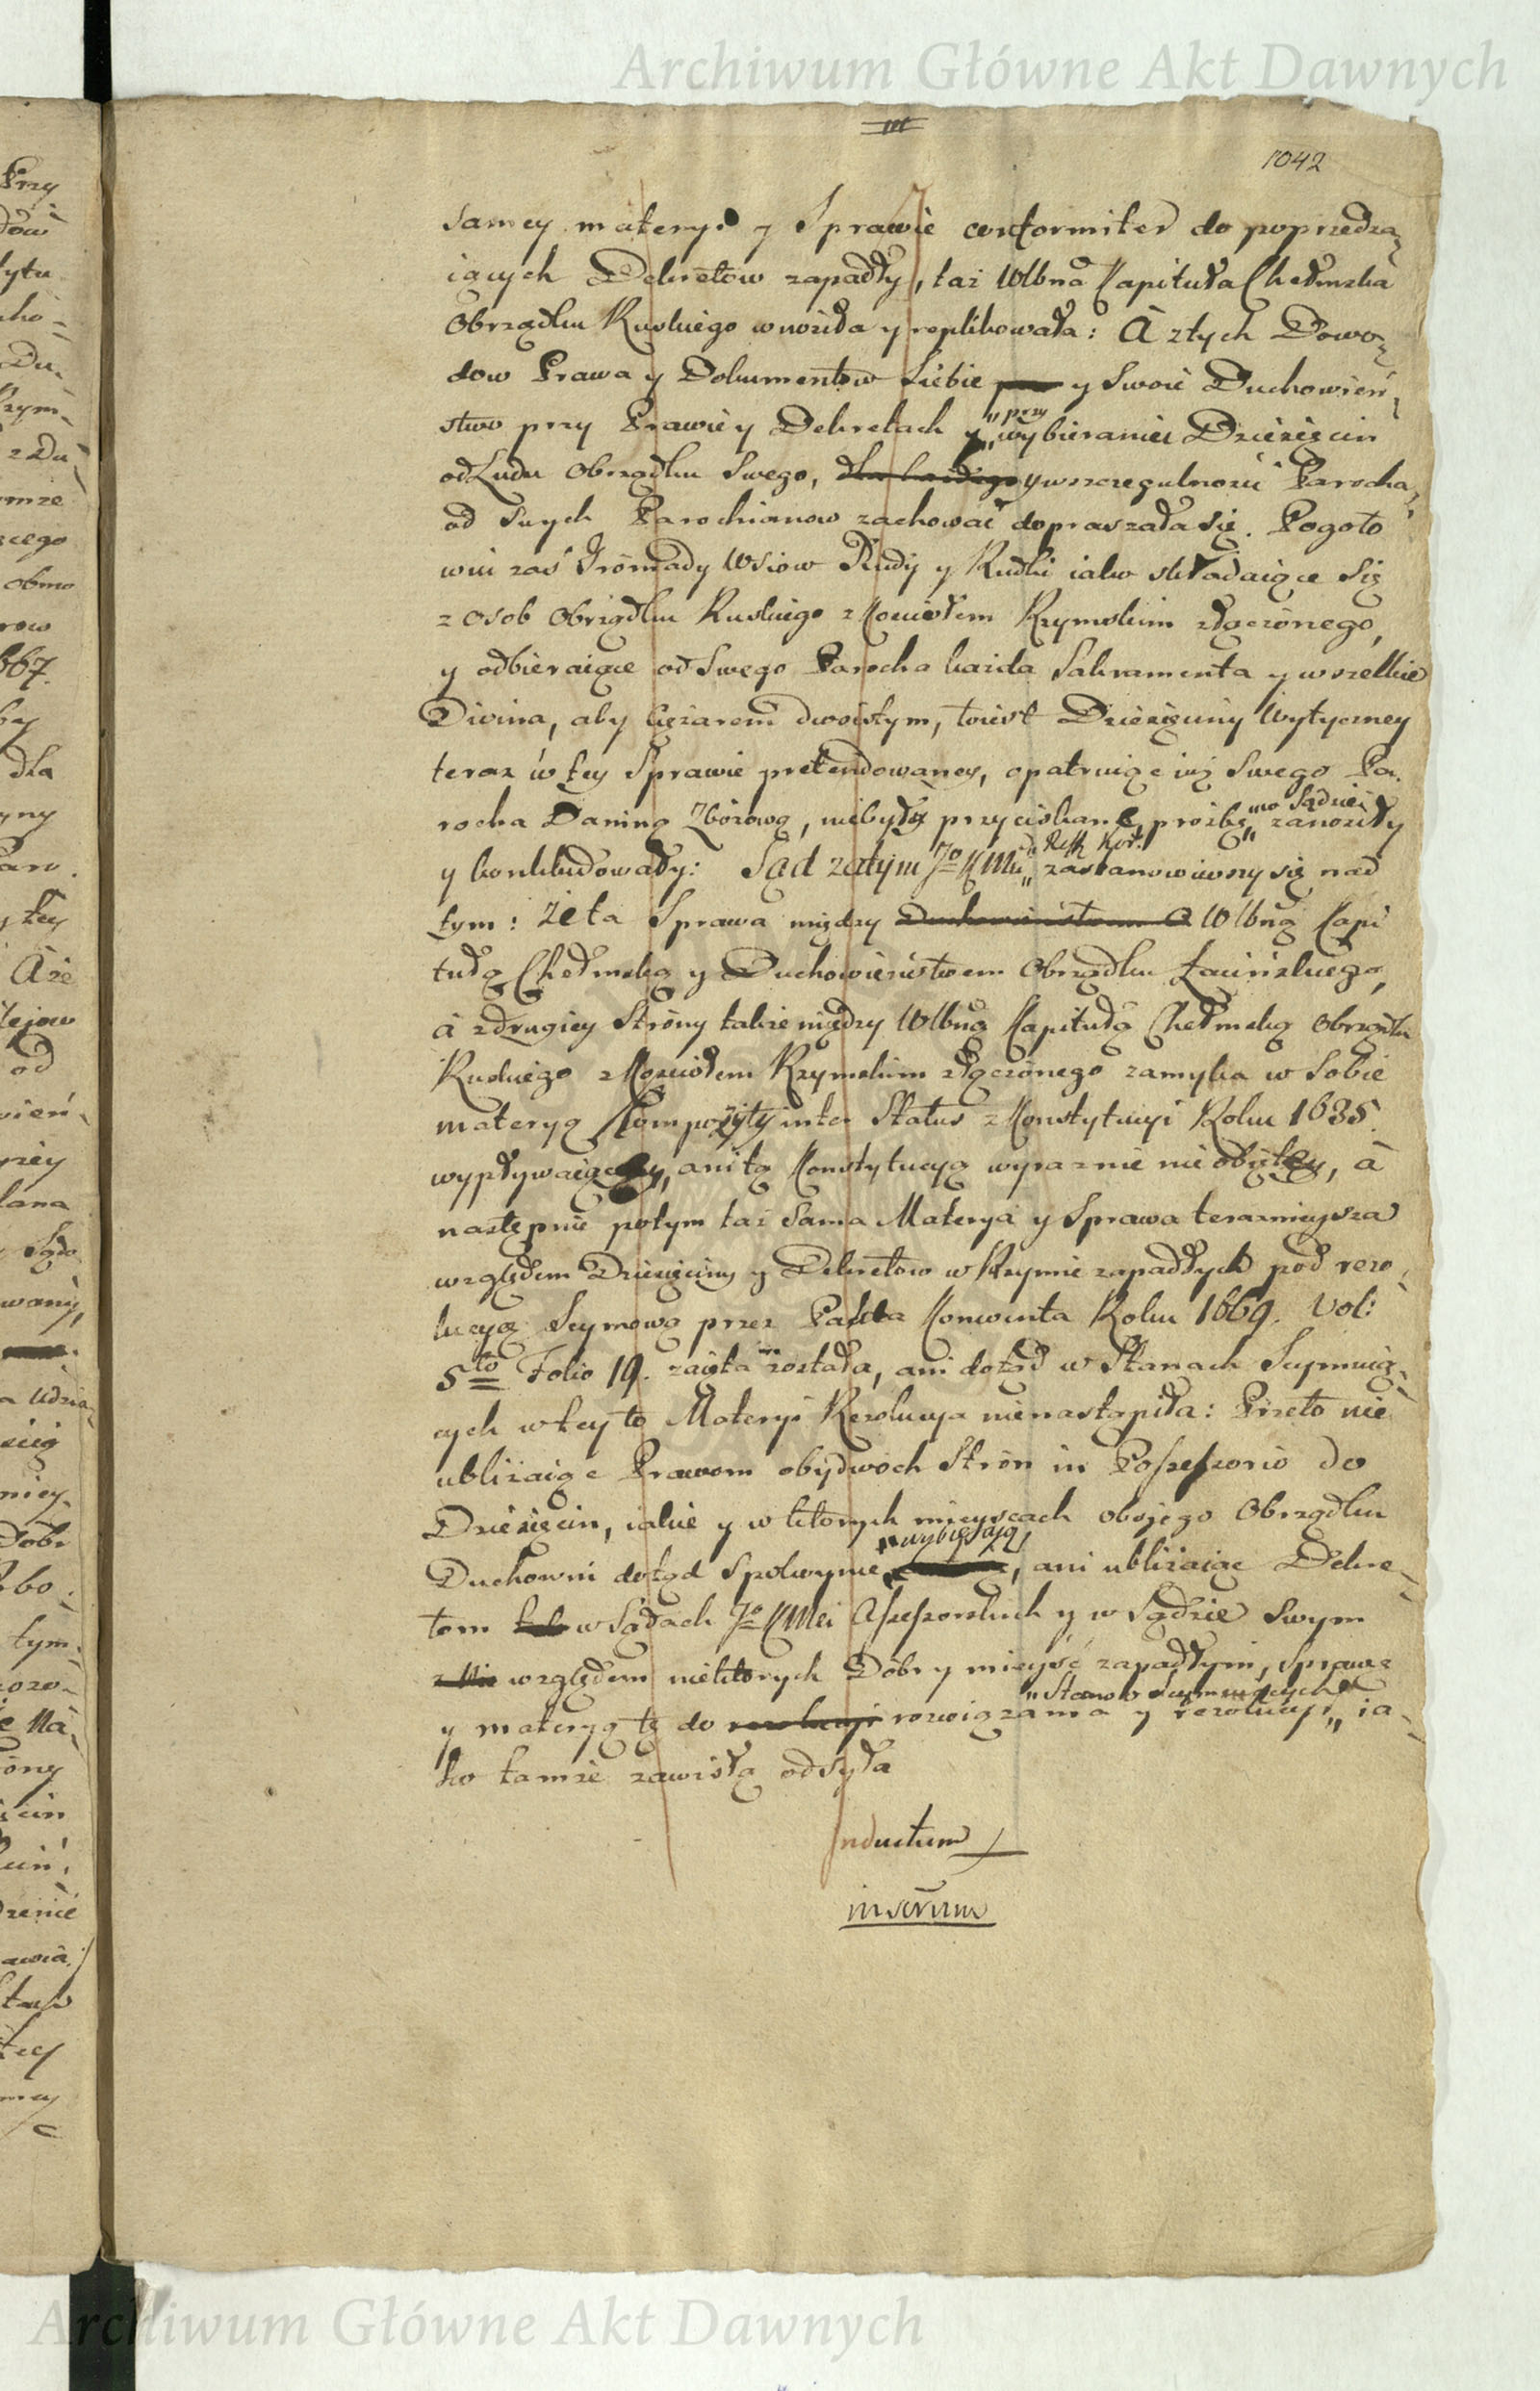 Archiwum Główne Akt Dawnych
III
1042
samey materyi y Sprawie conformiter do poprzedza=
iących Dekretow zapadły, taż Wlbna Kapituła Chełmska
Obrządku Ruskiego wnosiła y replikowała: A z tych Dowo=
dow Prawa y Dokumentow Siebie y Swoie Duchowień=
stwo przy Prawie y Dekretach y „przy wybieraniu Dziesięcin
od Ludu Obrządku Swego, y wszczegulnosci Parocha,
od Swych Parochianow zachować dopraszała się. Pogoto
wiu zaś Gromady Wsiow Rudy y Rudki iako składaiące Się
z osob Obrządku Ruskiego z Kosciołem Rzymskim złączonego,
y odbieraiące od Swego Parocha każda Sakramenta y wszelkie
Divina, aby ciężarem dwoistym, toiest Dziesięciny Wytyczney
teraz w tey Sprawie pretendowaney, opatruiąc iuż Swego Pa.
rocha Daniną Zbożową, niebyły przyciskane, prozbę „w Sądzie zanosiły
y konkludowały: Sąd zatym Jo KMci „Reff. Kor. zastanowiwszy się nad
tym: że ta Sprawa między Duchowieństwem a Wlbną Kapi
tułą Chełmską y Duchowieństwem Obrządku Łacińskiego,
à z drugiey Strony także między Wlbną Kapitułą Chełmską Obrządku
Ruskiego z Kosciołem Rzymskim złączonego zamyka w Sobie
materyą Kompozyty inter Status z Konstytucyi Roku 1635.
wypływaiącey, ani tą Konstytucyą wyraznie nieobiętey, à
następnie potym taż Sama Materya y Sprawa teraznieysza
względem Dziesięciny y Dekretow w Rzymie zapadłych pod rezo=
lucyą Seymową przez Pakta Konwenta Roku 1669. Vol:
5to Folio 19. zaięta została, ani dotąd w Stanach Seymuią=
cych w tey to Materyi Rezolucya nienastąpiła: Przeto nie
ubliżaiąc Prawom obydwoch Stron in Possessorio do
Dziesięcin, iakie y w ktorych mieyscach oboiego Obrządku
Duchowni dotąd Spokoynie „wybieraią, ani ubliżaiąc Dekre=
tom w Sądach Jo KMci Assessorskich y w Sądzie Swym
względem niektorych Dobr y mieysc zapadłym, Sprawę
y materyą tę do rezolucyi rozwiązania y rezolucyi „Stanow Seymuiących ia=
ko tamże zawisłą odsyła
Inductum
Archiwum Główne Akt Dawnych